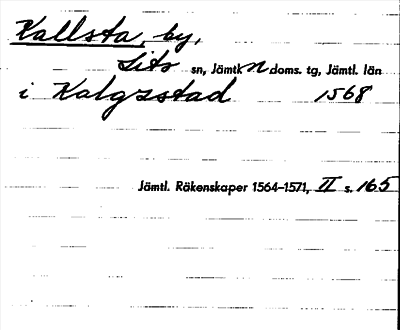 Kallsta, by,
Lits sn, Jämtk n doms. tg, Jämtl. län
i Kalgzstad 1568
Jämtl. Räkenskaper 1564–1571, II s. 165